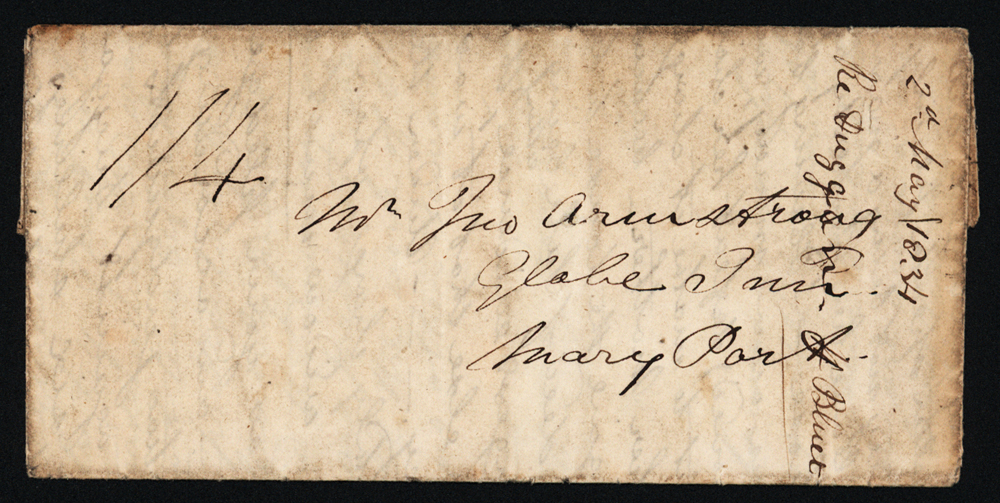 1/4
Mr Jno Armstrong
Globe Inn.
Mary Port
2d May 1834
Re Duggan
H Bluet